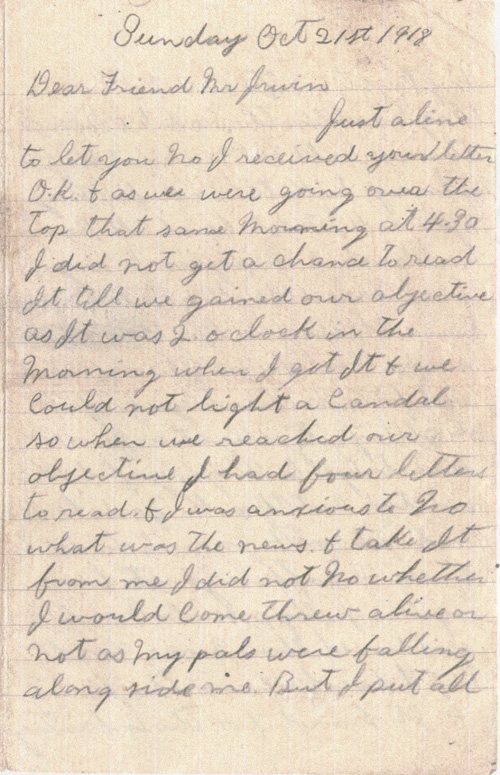 Sunday Oct 21st 1918
Dear Friend Mr Irwin
Just a line
to let you No I received your letter
O.K. & as wee were going over the
Top that same Morning at 4.30
I did not get a chance to read
It till we gained our objective
as It was 2 o clock in the
Morning when I got It & we
Could not light a Candal
so when we reached our
objective I had four letters
to read. & I was anxious to No
what was the news. & take It
from me I did not No whether
I would Come threw alive or
not as My pals were falling
along side me. But I put all